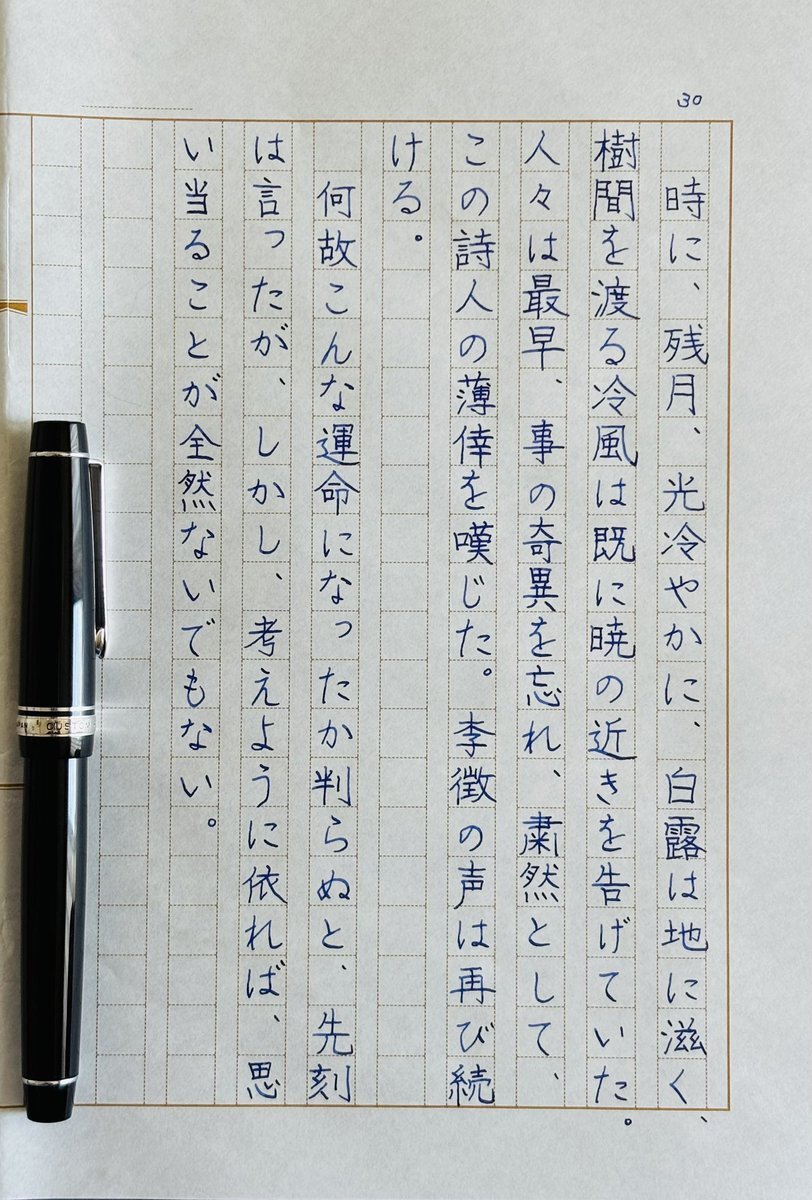 30
時に、残月、光冷やかに、白露は地に滋く、
樹間を渡る冷風は既に暁の近きを告げていた。
人々は最早、事の奇異を忘れ、粛然として、
この詩人の薄倖を嘆じた。李徴の声は再び続
ける。
何故こんな運命になったか判らぬと、先刻
は言ったが、しかし、考えように依れば、思
い当ることが全然ないでもない。
CUSTOM